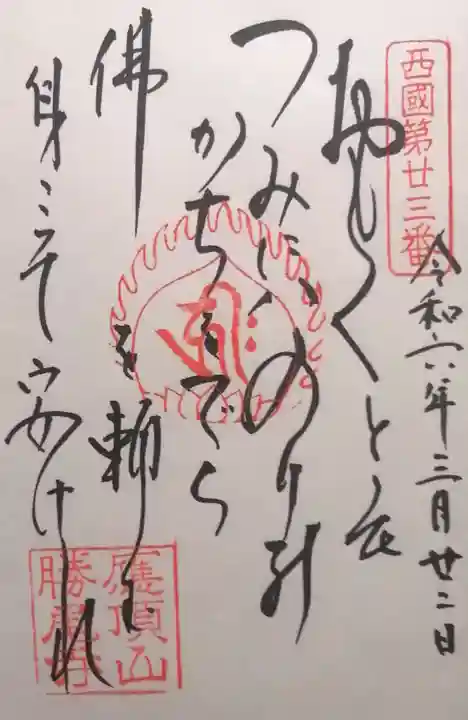 西國第廿三番
令和六年三月廿二日
おもくとも
つみにハのり
かちをでら
佛を頼む
身こそ安けれ
應頂山
勝尾寺